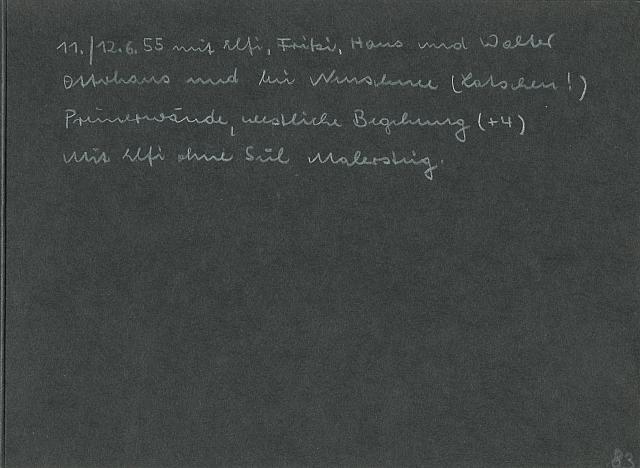 11./12.6.55 mit Elfi, Fritzi, Hans und Walter
Ottohaus und bei Neuschnee (Latschen!)
Preinerwände, westliche Begehung (+4)
Mit Elfi ohne Seil Malersteig.
83